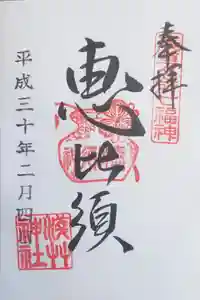 奉拝
恵比須
平成三十年二月四日
浅草神社